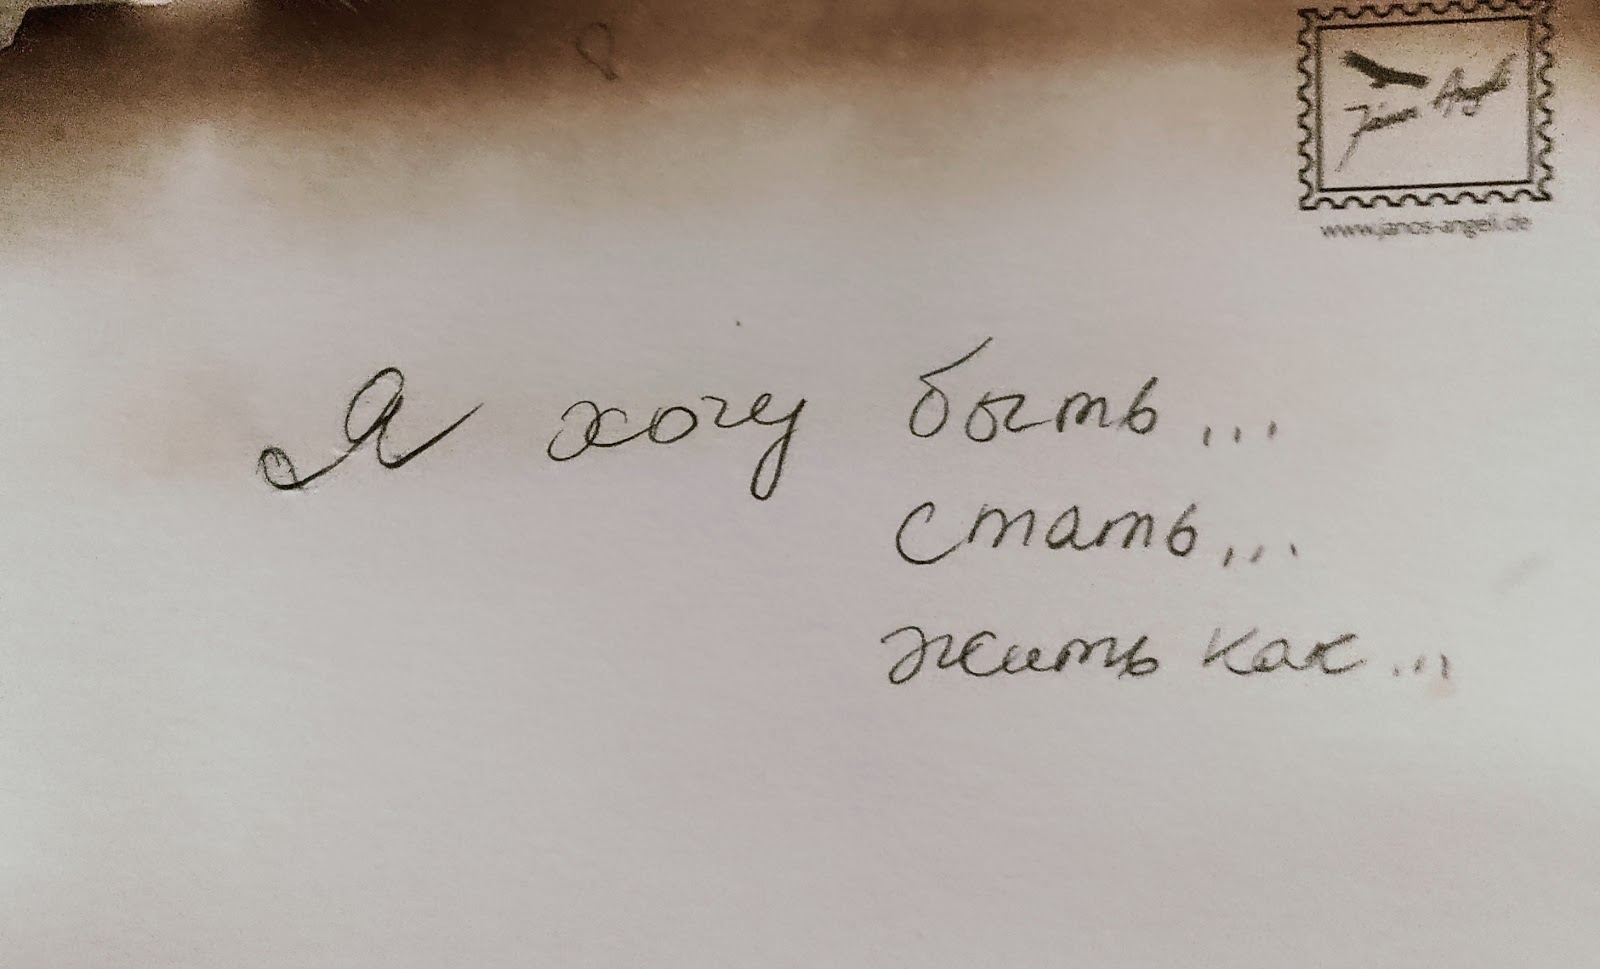 Janos Angeli
www.janos-angeli.de
Я хочу быть...
стать...
жить как...